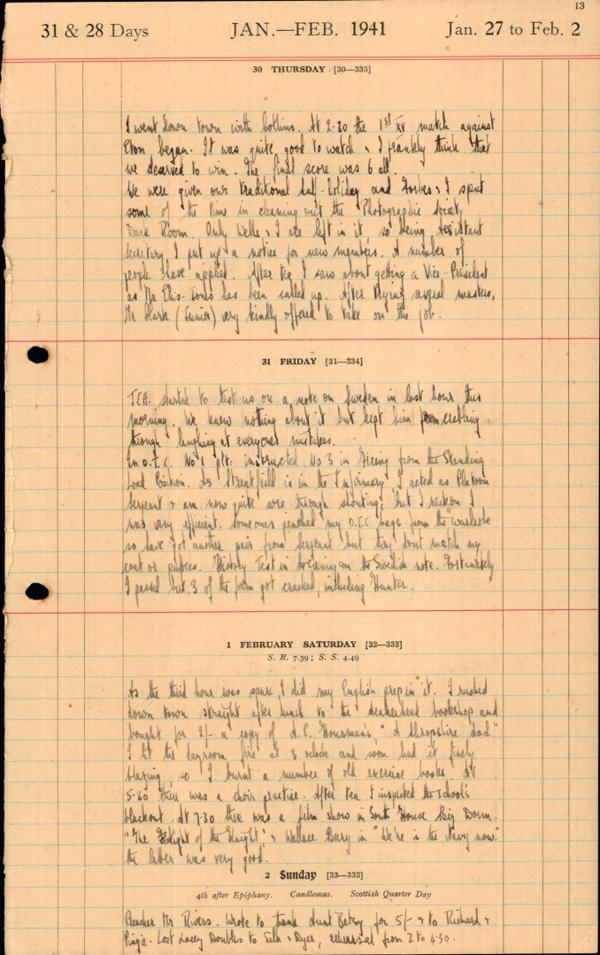 13
31 & 28 Days JAN.—FEB. 1941 Jan. 27 to Feb. 2
30 THURSDAY [30—335]
I went down town with Collins. At 2.30 the 1st XV match against
Eton began. It was quite good to watch & I frankly think that
we deserved to win. The final score was 6 all.
We were given our traditional half-holiday and Forbes & I spent
some of the time in cleaning out the Photographic Society
Dark Room. Only Wells & I are left in it, so being Assistant
Secretary, I put up a notice for new members. A number of
people have applied. After tea I saw about getting a Vice-President
as Mr Ellis-Jones has been called up. After trying several masters,
Mr Clark (Junior) very kindly offered to take on the job.
31 FRIDAY [31—334]
J.C.H. started to test us on a note on Sweden in last hour this
morning. We knew nothing about it but kept him from
through laughing at everyones mistakes.
In O.T.C. No 1 plt: instructed No 3 in Firing from the Standing
Load Position. As Streatfeild is in the Infirmary I acted as Platoon
Sergeant & am now quite sore through shouting, but I reckon I
was very efficient. Someones pinched my O.T.C bags from the wardrobe
so have got another pair from Sergeant but they dont match my
coat or puttees. History Test in evening on the Swedish note. Fortunately
I passed but 3 of the form got cracked, including Hunter.
1 FEBRUARY SATURDAY [32—333]
S. R. 7.39; S. S. 4.49
As the third hour was spare, I did my English prep in it. I rushed
down town straight after lunch to the Leatherhead bookshop and
bought for 2/- a copy of A. E. Housman's "A Shropshire Lad."
I lit the dayroom fire at 3 oclock and soon had it finely
blazing, so I burnt a number of old exercise books. At
5.30 there was a choir practise. After tea I inspected the school's
blackout. At 7.30 there was a film show in South House Big Dorm.
"The Flight of the " & Wallace Beery in "We're in the Navy now."
the latter was very good.
2 Sunday [33—332]
4th after Epiphany. Candlemas. Scottish Quarter Day
Preacher Mr Rivers. Wrote to thank Aunt Betsy for 5/- & to Richard &
Lost Doubles to Silk & Dyer, rehearsal from 2 to 4.30.